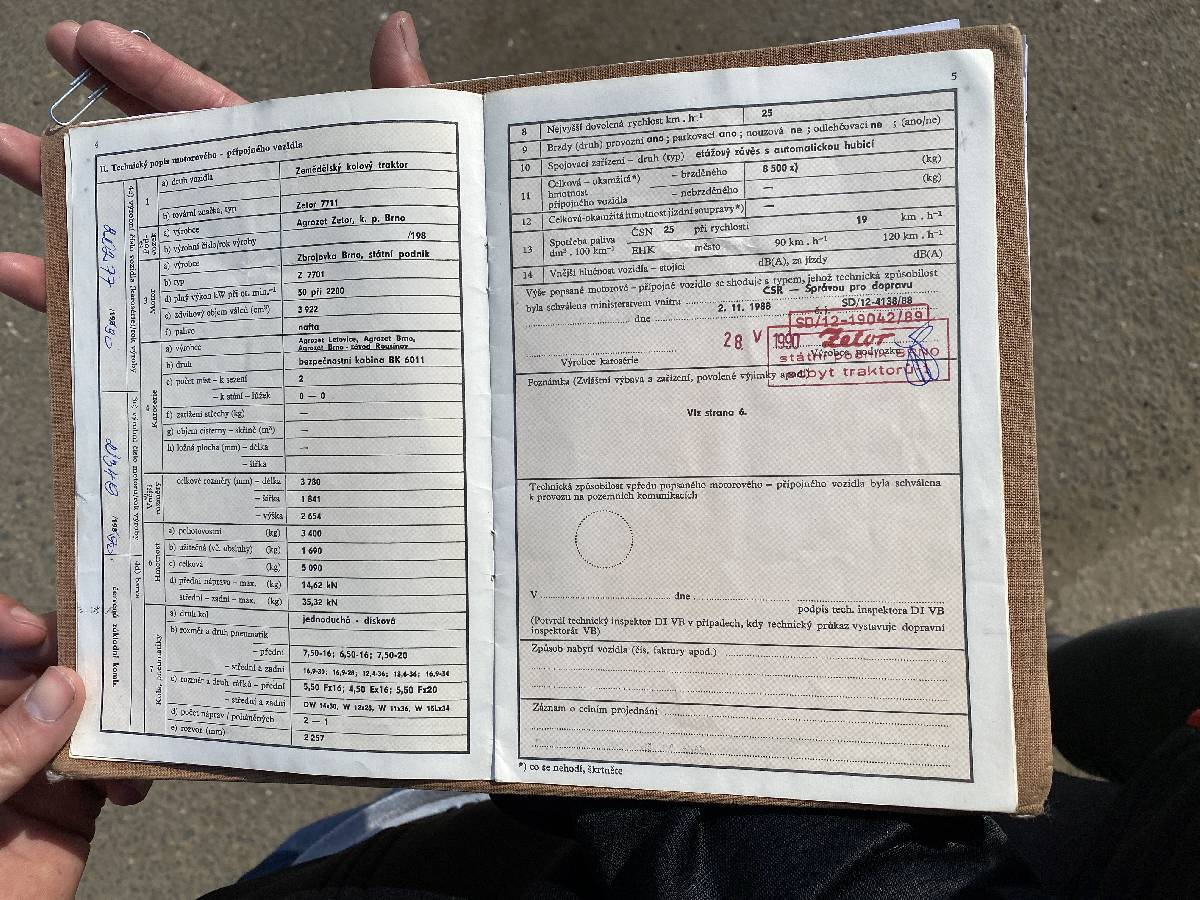 4
II. Technický popis motorového - přípojného vozidla
1 a) druh vozidla Zemědělský kolový traktor
b) tovární značka, typ Zetor 7711
a) výrobce Agrozet Zetor, k. p. Brno
b) výrobní číslo/rok výroby /198
Motor a) výrobce Zbrojovka Brno, státní podnik
b) typ Z 7701
d) plný výkon kW při ot. min.⁻¹ 50 při 2200
e) zdvihový objem válců (cm³) 3 922
f) palivo nafta
Karoserie a) výrobce Agrozet Letovice, Agrozet Brno,
Agrozet Brno - závod Rousínov
b) druh bezpečnostní kabina BK 6011
c) počet míst – k sezení 2
– k stání – lůžek 0 — 0
f) zatížení střechy (kg) —
g) objem cisterny – skříně (m³) —
h) ložná plocha (mm) – délka —
– šířka
celkové rozměry (mm) – délka 3 780
– šířka 1 841
– výška 2 654
6 Hmotnost a) pohotovostní (kg) 3 400
b) užitečná (vč. obsluhy) (kg) 1 690
c) celková (kg) 5 090
d) přední náprava – max. (kg) 14,62 kN
střední – zadní – max. (kg) 35,32 kN
Kola, pneumatiky a) druh kol jednoduchá - disková
b) rozměr a druh pneumatik
– přední 7,50-16; 6,50-16; 7,50-20
– střední a zadní 16,9-30; 16,9-28; 12,4-36; 13,6-36; 16,9-34
c) rozměr a druh ráfků – přední 5,50 Fx16; 4,50 Ex16; 5,50 Fx20
– střední a zadní DW 14x30, W 12x28, W 11x36, W 15Lx34
d) počet náprav / poháněných 2 — 1
e) rozvor (mm) 2 257
4a) výrobní číslo vozidla (karosérie)/rok výroby
3c) výrobní číslo motoru/rok výroby
4d) barva
červená základní komb.
5
8 Nejvyšší dovolená rychlost km . h⁻¹ 25
9 Brzdy (druh) provozní ano ; parkovací ano ; nouzová ne ; odlehčovací ne ; (ano/ne)
10 Spojovací zařízení – druh (typ) etážový závěs s automatickou hubicí
11 Celková – okamžitá*) – brzděného 8 500 x) (kg)
hmotnost
přípojného vozidla – nebrzděného — (kg)
12 Celková-okamžitá hmotnost jízdní soupravy*) —
13 Spotřeba paliva ČSN 25 při rychlosti 19 km . h⁻¹
dm³ . 100 km⁻¹ EHK město 90 km . h⁻¹ 120 km . h⁻¹
14 Vnější hlučnost vozidla – stojící dB(A), za jízdy dB(A)
Výše popsané motorové – přípojné vozidlo se shoduje s typem, jehož technická způsobilost
ČSR — Správou pro dopravu
byla schválena ministerstvem vnitru 2. 11. 1988 č. j. SD/12-4138/88
dne
SD/12-19042/89
28 V 1990
Zetor
státní p. BRNO
odbyt traktorů
Výrobce karosérie Výrobce podvozku
Poznámka (Zvláštní výbava a zařízení, povolené výjimky apod.)
Viz strana 6.
Technická způsobilost vpředu popsaného motorového – přípojného vozidla byla schválena
k provozu na pozemních komunikacích
V dne
podpis tech. inspektora DI VB
(Potvrdí technický inspektor DI VB v případech, kdy technický průkaz vystavuje dopravní
inspektorát VB)
Způsob nabytí vozidla (čís. faktury apod.)
Záznam o celním projednání
*) co se nehodí, škrtněte